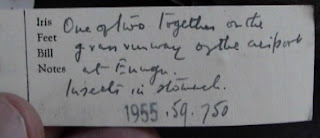 Iris One of two together on the
Feet grass runway of the airport
Bill at Enugu.
Notes Insects in stomach.
1955.59.750